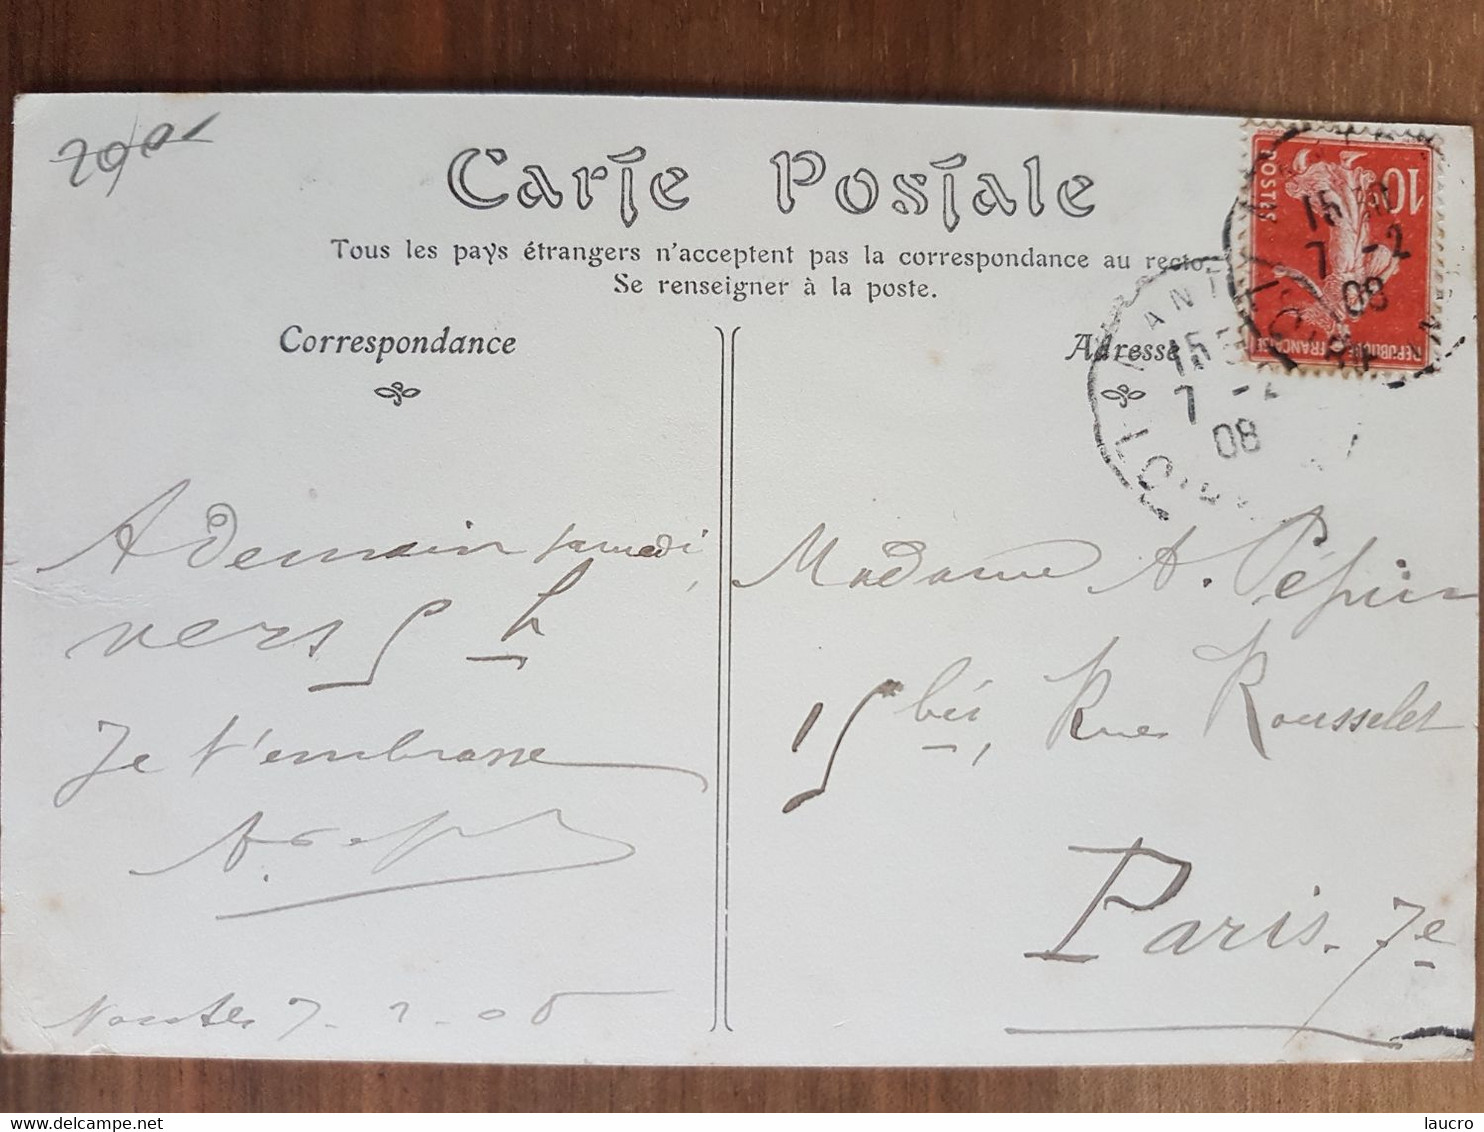 Carte Postale
Tous les pays étrangers n'acceptent pas la correspondance au recto
Se renseigner à la poste.
Correspondance
Adresse
10
POSTES
REPUBLIQUE FRANÇAISE
15
7 -2
08
NANT
15
7 -2
08
LOIRE
A demain samedi,
vers 5 h
Je t'embrasse
A.
Nantes 7-2-08
Madame A. Pépin
15 bis, Rue Rousselet
Paris. 7e
delcampe.net
laucro